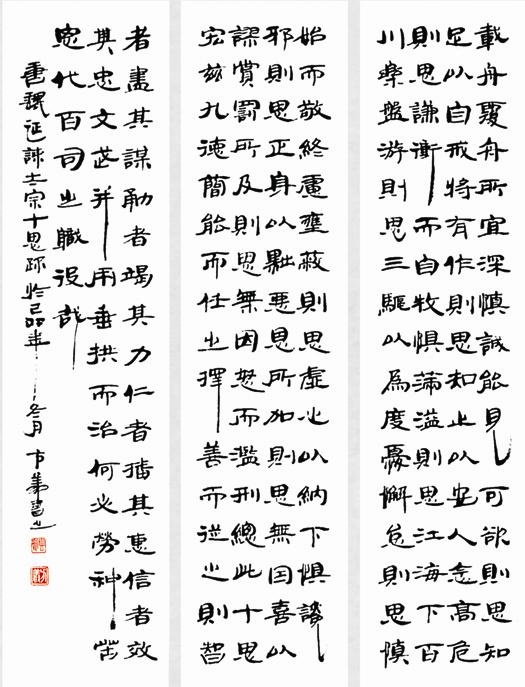 載舟覆舟所宜深慎誠能見可欲則思知
足以自戒將有作則思知止以安人念高危
則思謙衝而自牧懼滿溢則思江海下百
川樂盤游則思三驅以為度憂懈怠則思慎
始而敬終慮壅蔽則思虛心以納下懼讒
邪則思正身以黜惡恩所加則思無因喜以
謬賞罰所及則思無因怒而濫刑總此十思
宏茲九德簡能而任之擇善而從之則智
者盡其謀勇者竭其力仁者播其惠信者效
其忠文武并用垂拱而治何必勞神苦
思代百司之職役哉
書魏征諫太宗十思疏於己丑年冬月書之